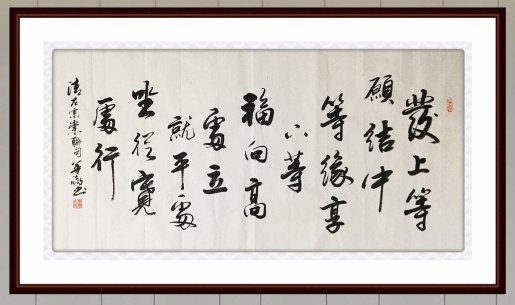 發上等
願結中
等緣享
下等
福向高
處立
就平處
坐從寬
處行
清左宗棠聯句 書